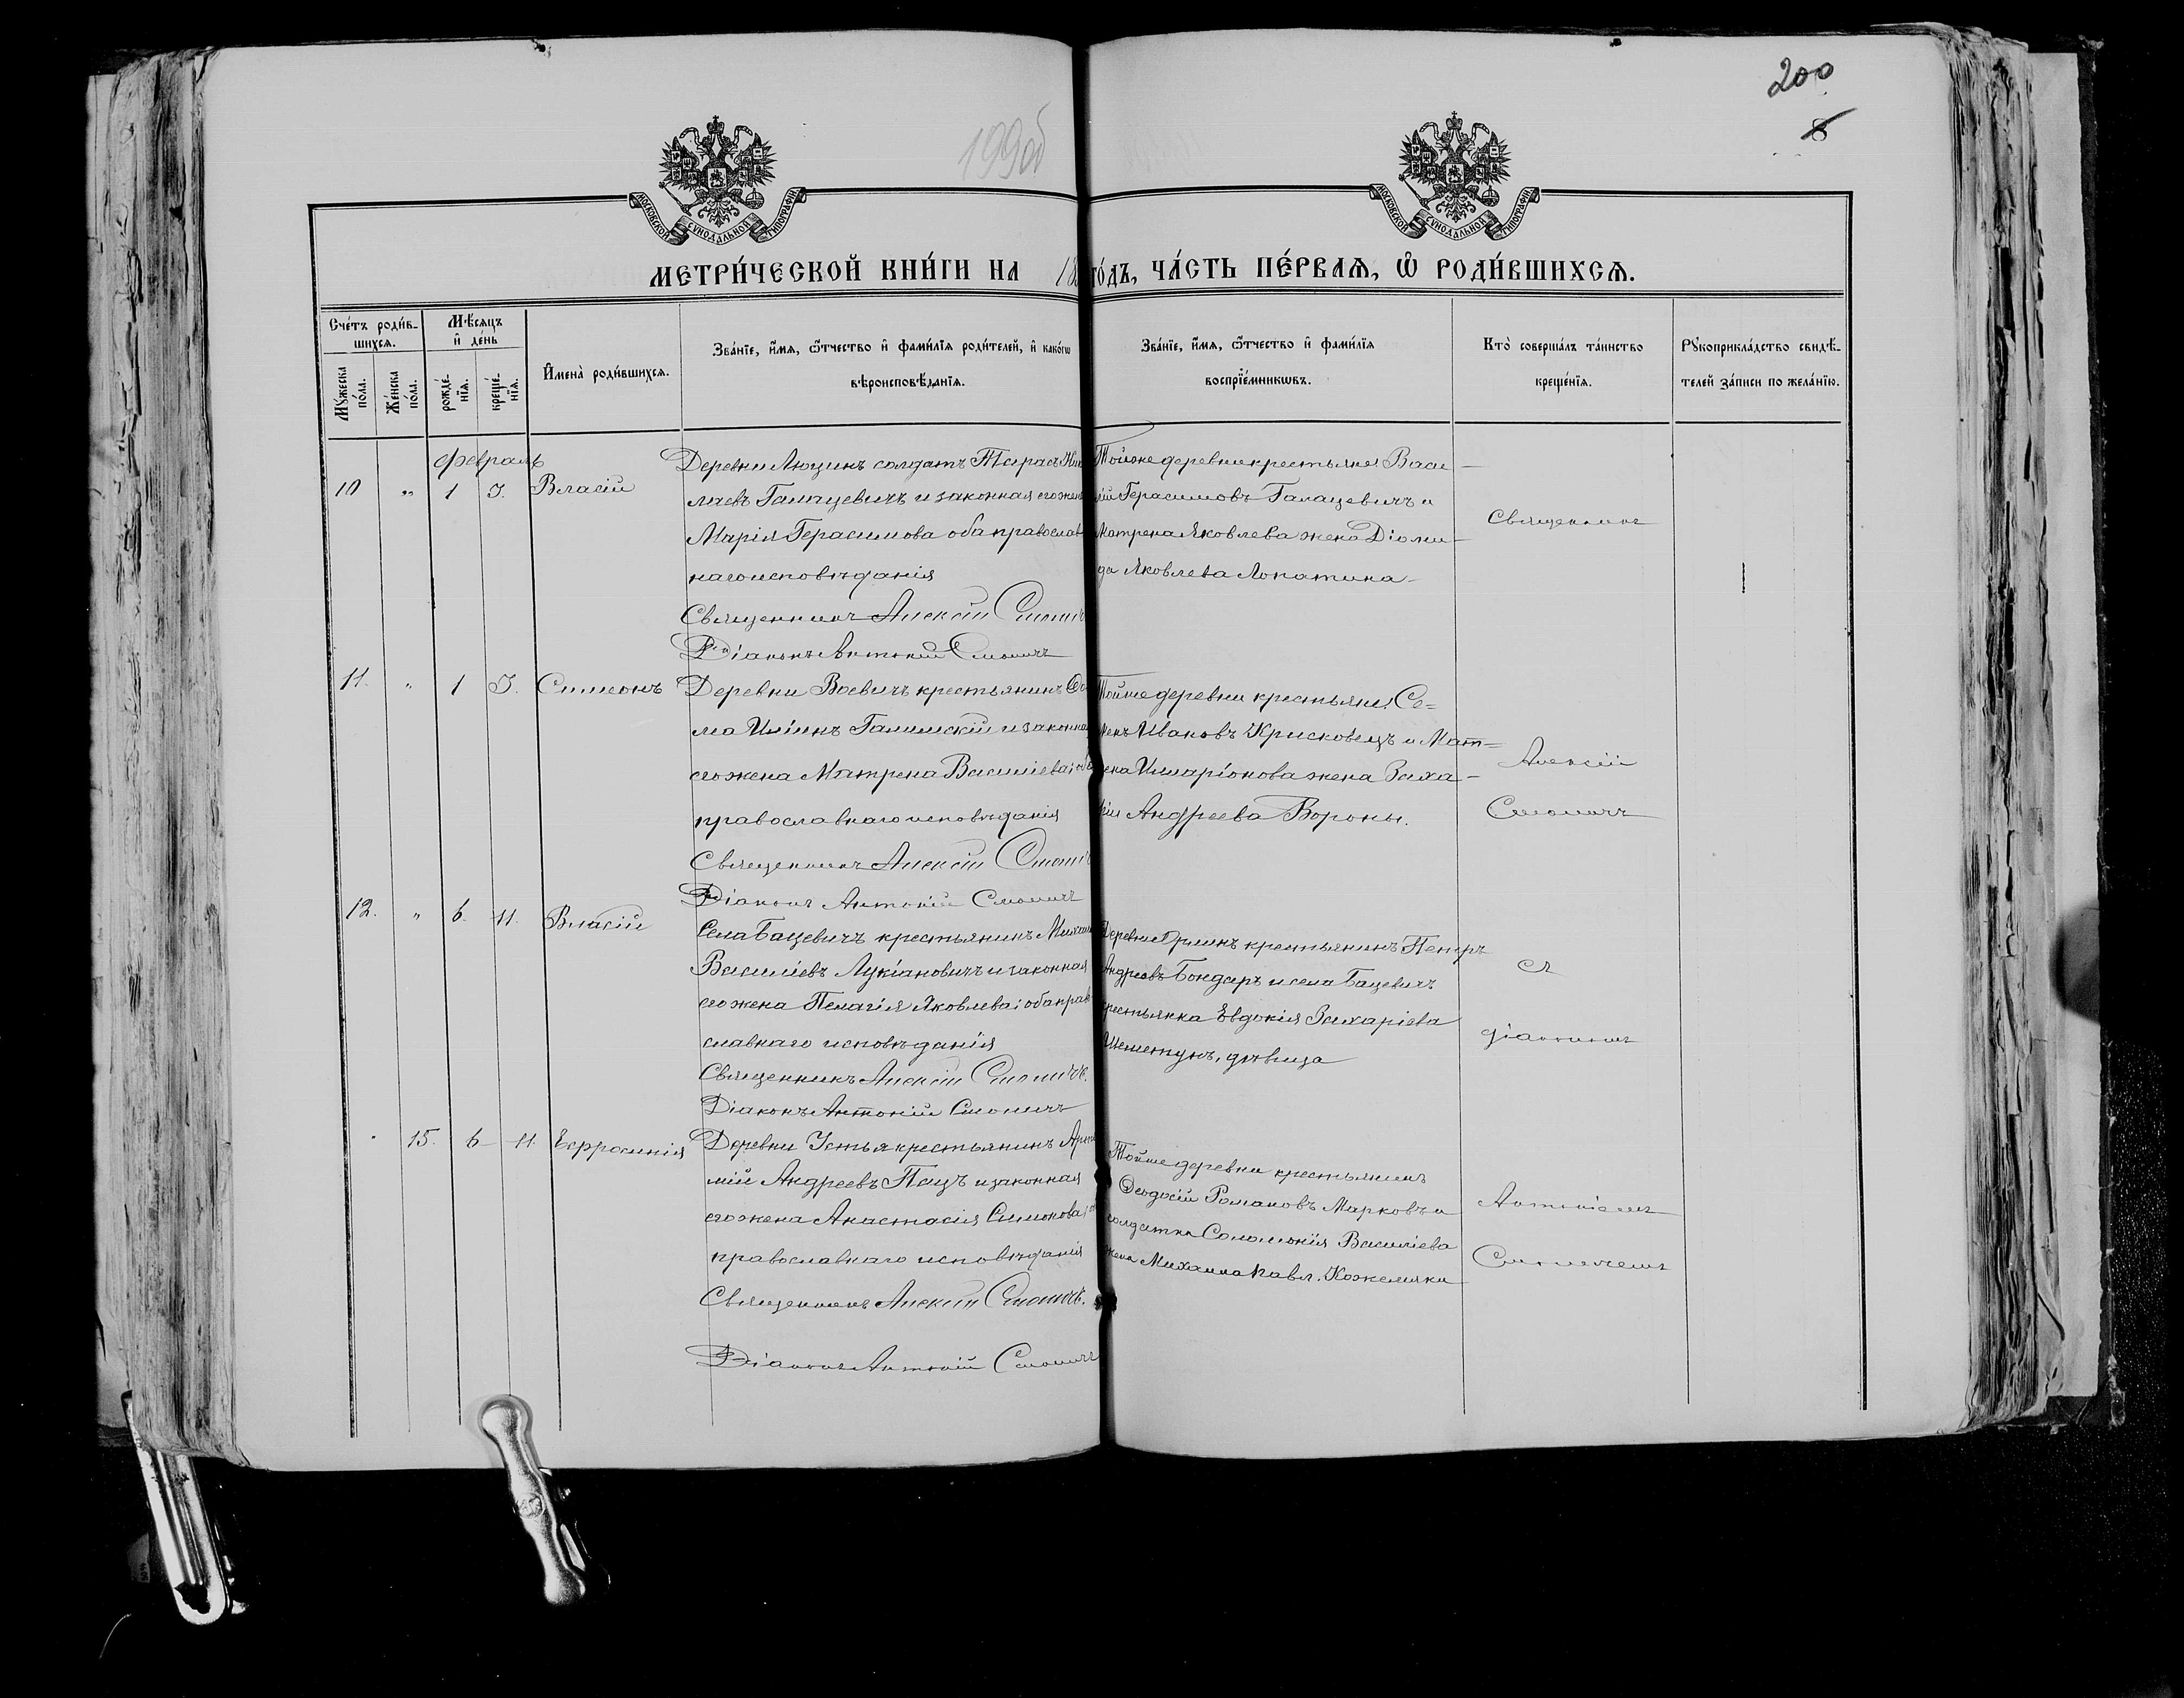 200
8
199об
МОСКОВСКОЙ СѴНОДАЛЬНОЙ ТИПОГРАФІИ
МОСКОВСКОЙ СѴНОДАЛЬНОЙ ТИПОГРАФІИ
МЕТРИ́ЧЕСКОЙ КНИ́ГИ НА 18 ГО́ДЪ, ЧА́СТЬ ПЕ́РВАѦ, Ѡ҆ РОДИ́ВШИХСѦ.
Сче́тъ роди́в-
шихсѧ.
Мꙋ́жеска по́ла.
Же́нска по́ла.
Мѣ́сѧцъ
и҆ де́нь
рожде́-
нїѧ.
креще́-
нїѧ.
И҆мена̀ роди́вшихсѧ.
Зва́нїе, и҆́мѧ, ѻ҆́тчество и҆ фами́лїѧ роди́телей, и҆ како́гѡ
вѣроисповѣ́данїѧ.
Зва́нїе, и҆́мѧ, ѻ҆́тчество и҆ фами́лїѧ
воспрїе́мникѡвъ.
Кто̀ соверша́лъ та́инство
креще́нїѧ.
Рꙋкоприкла́дство свидѣ́-
телей за́писи по жела́нїю.
Февраль
10 " 1 5. Власій
Деревни Люзинъ солдатъ Тарасъ Ник
лаевъ Галацевичъ и законная его жена
Марія Герасимова оба православ
наго исповѣданія
Священникъ Алексій Смолич
Діаконъ Антоній Смоличъ
Тойже деревни крестьяне Васи
лій Герасимовъ Галацевичъ и
Матрена Яковлева жена Діоми-
да Яковлева Лопатина
Священникъ
11. " 1 5. Симеонъ
Деревни Воевичъ крестьянинъ Ѳо
ма Иліинъ Галимскій и законная
его жена Матрена Василіева; оба
православнаго исповѣданія
Священникъ Алексій Смолич
Діаконъ Антоній Смоличъ
Тойже деревни крестьяне Се=
менъ Ивановъ Крисковецъ и Мат=
рена Иларіонова жена Заха-
рія Андреева Вороны.
Алексій
Смоличъ
12. " 6. 11. Власій
Села Бацевичъ крестьянинъ Михаил
Василіевъ Лукіановичъ и законная
его жена Пелагія Яковлева; оба прав
славнаго исповѣданія
Священникъ Алексій Смоличъ.
Діаконъ Антоній Смоличъ
Деревни крестьянинъ Петръ
Андреевъ Бондарь и села Бацевичъ
крестьянка Евдокія Захаріева
Шешетунъ, дѣвица
съ
діакономъ
15. 6 11. Евфросинія
Деревни Устья крестьянинъ Арте
мій Андреевъ Пацъ и законная
его жена Анастасія Симонова; об
православнаго исповѣданія
Священникъ Алексій Смоличъ.
Діаконъ Антоній Смоличъ
Тойже деревни крестьянинъ
Ѳеодосій Романовъ Марковъ и
солдатка Соломонія Василіева
жена Михаила Павл. Кожемяки
Антоніемъ
Смоличемъ